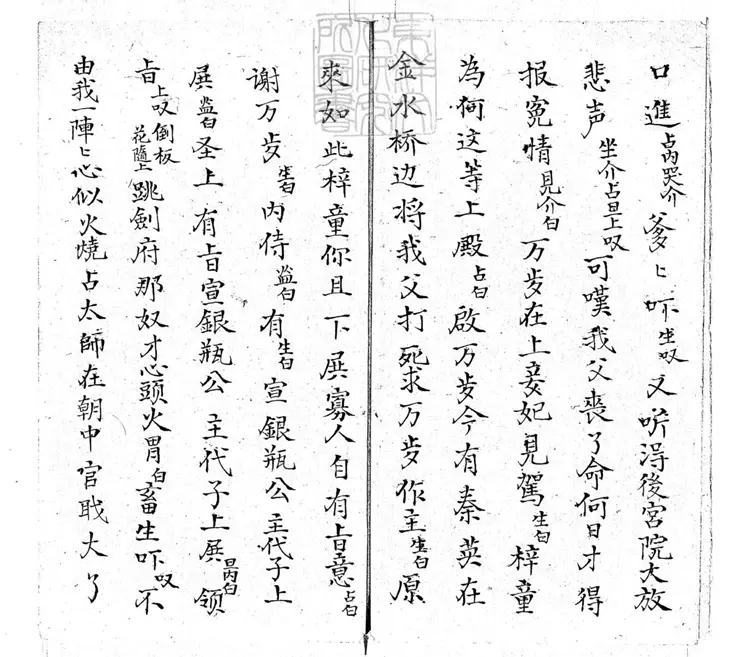 口進占内哭介爹〻吓生叹又听淂後宮院大放
悲声坐介占旦上叹可嘆我父喪了命何日才得
报冤情見介白万岁在上妾妃見駕生白梓童
為何这等上殿占白啟万岁今有秦英在
金水桥边将我父打死求万岁作主生白原
來如此梓童你且下展寡人自有旨意占白
谢万岁生白内侍监白有生白宣銀瓶公主代子上
展监白圣上有旨宣銀瓶公主代子上展旦内白领
旨上叹倒板花隨上跳劍府那奴才心頭火胃白畜生吓叹不
由我一陣〻心似火燒占太師在朝中官戝大了